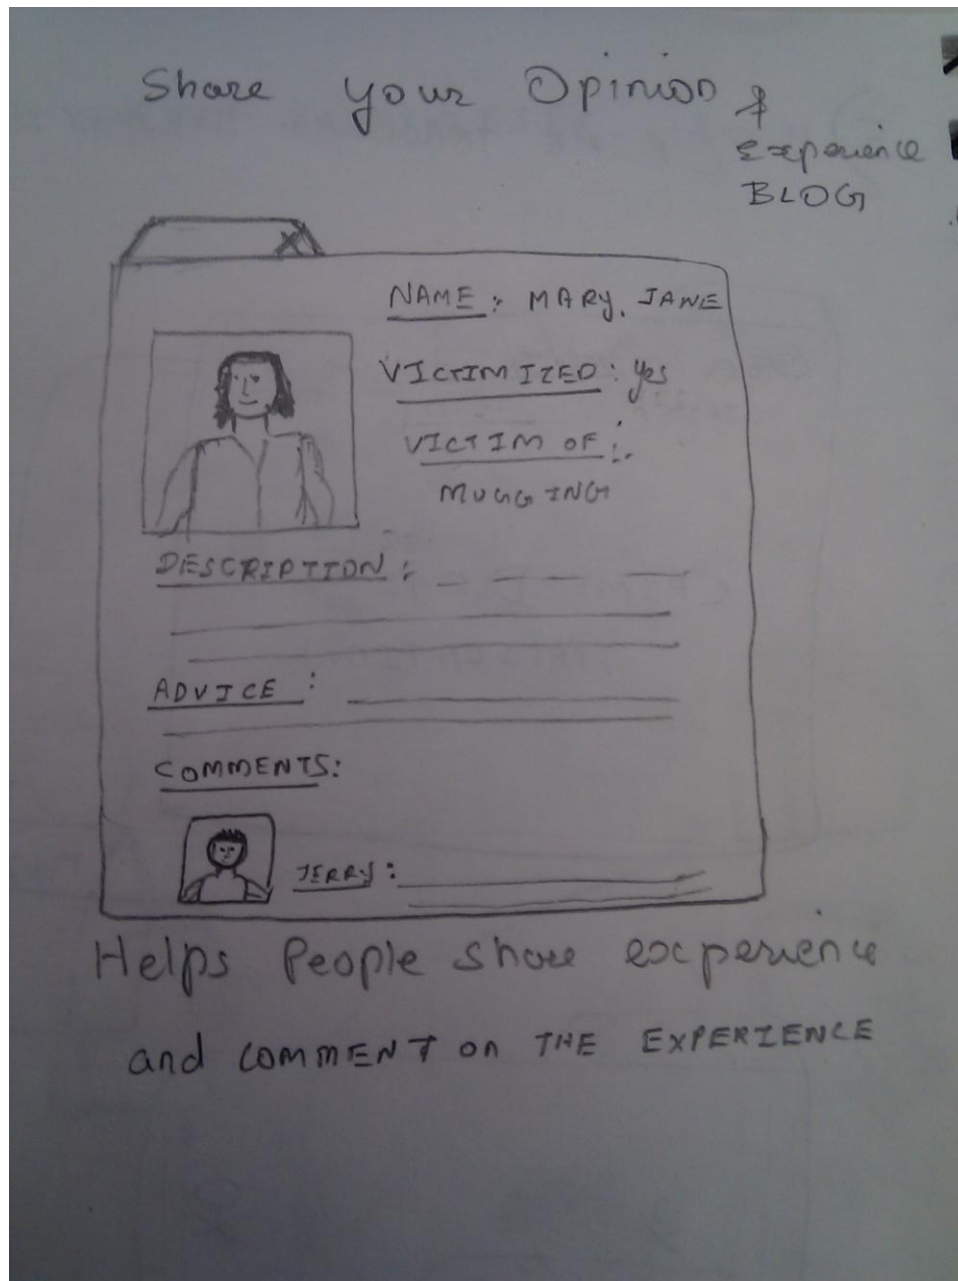 Share your Opinion &
Experience
BLOG
NAME: MARY. JANE
VICTIMIZED: yes
VICTIM OF:
MUGGING
DESCRIPTION:
ADVICE:
COMMENTS:
JERRY:
Helps People share experience
and COMMENT on THE EXPERIENCE